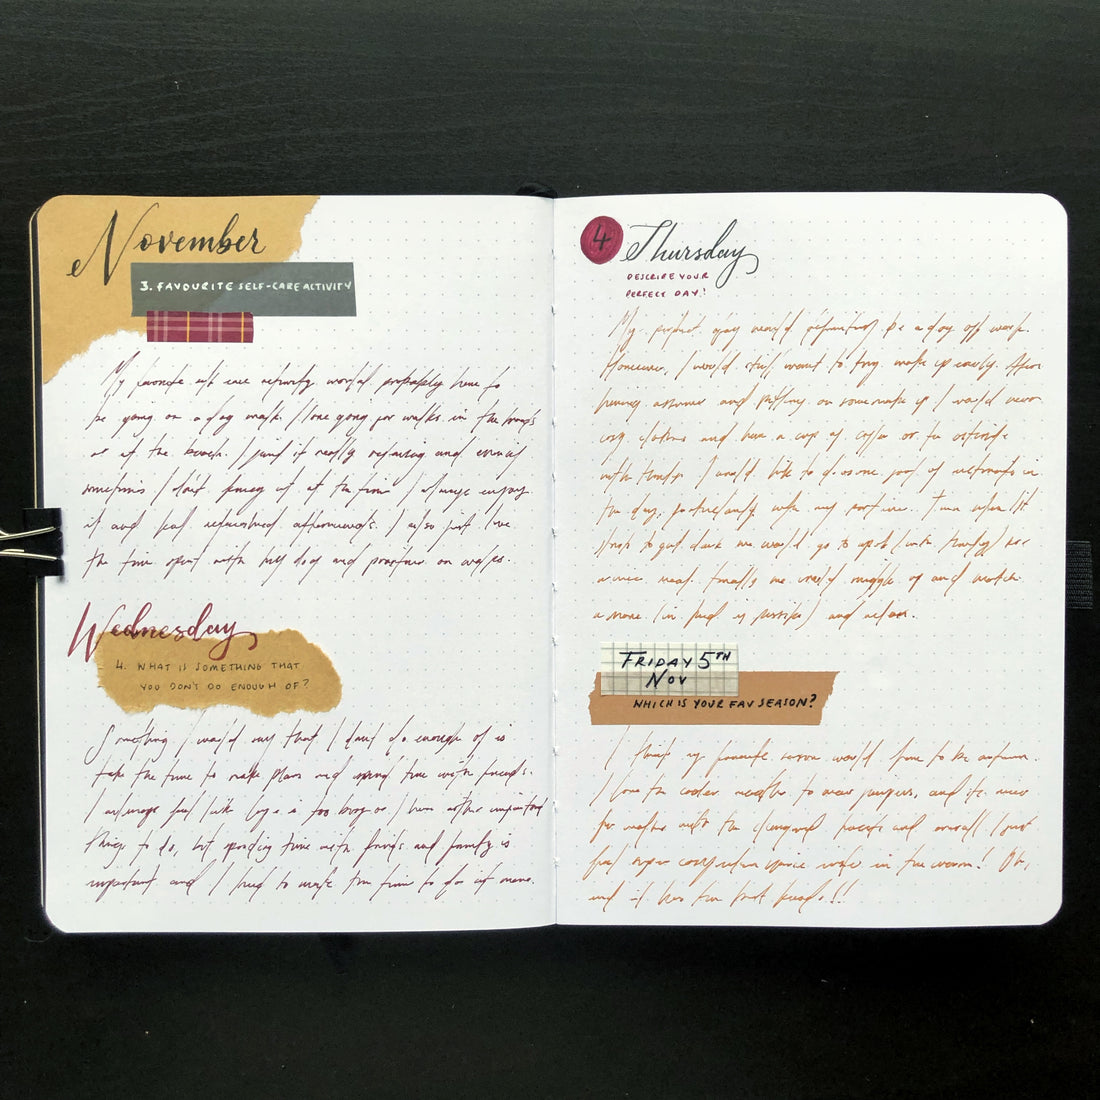 November
3. FAVOURITE SELF-CARE ACTIVITY
My favorite self care activity would probably have to
be going on a dog walk. I love going for walks in the woods
or at the beach. I find it really relaxing and even if
sometimes I don't fancy it at the time I always enjoy
it and feel refreshed afterwards. I also just love
the time spent with my dog and on walks.
Wednesday
4. WHAT IS SOMETHING THAT
YOU DON'T DO ENOUGH OF?
Something I would say that I don't do enough of is
take the time to make plans and spend time with friends.
I always feel like I'm too busy or I have other important
things to do, but spending time with friends and family is
important and I need to make the time to do it more.
4 Thursday
DESCRIBE YOUR
PERFECT DAY!
My perfect day would definitely be a day off work.
However, I would still want to wake up early. After
having a shower and putting on some make up I would wear
cosy clothes and have a cup of coffee or tea outside
with I would like to do some sort of in
the day, with my
to get dark we would go to (with ) for
a meal. Finally we would snuggle up and watch
a movie (in bed if possible) and relax.
FRIDAY 5TH
NOV
WHICH IS YOUR FAV SEASON?
I think my favourite season would have to be autumn.
I love the cooler weather to wear jumpers, and it's nicer
for walks with the and overall I just
feel super cosy when I'm in the warm! Oh,
and it has the best foods!!